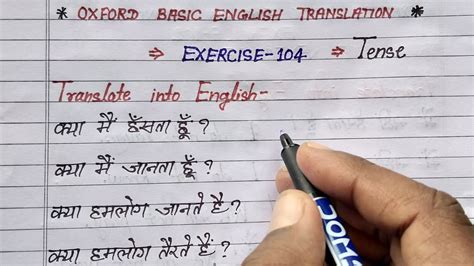 * OXFORD BASIC ENGLISH TRANSLATION *
⇒ EXERCISE-104 ⇒ Tense
Translate into English-
क्या मैं हँसता हूँ ?
क्या मैं जानता हूँ ?
क्या हमलोग जानते है ?
क्या हमलोग तैरते हैं ?